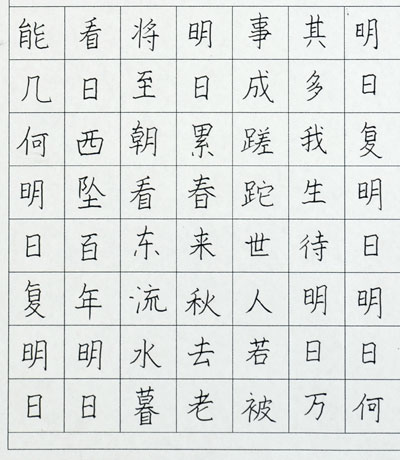 明日复明日明日何
其多我生待明日万
事成蹉跎世人若被
明日累春来秋去老
将至朝看东流水暮
看日西坠百年明日
能几何明日复明日